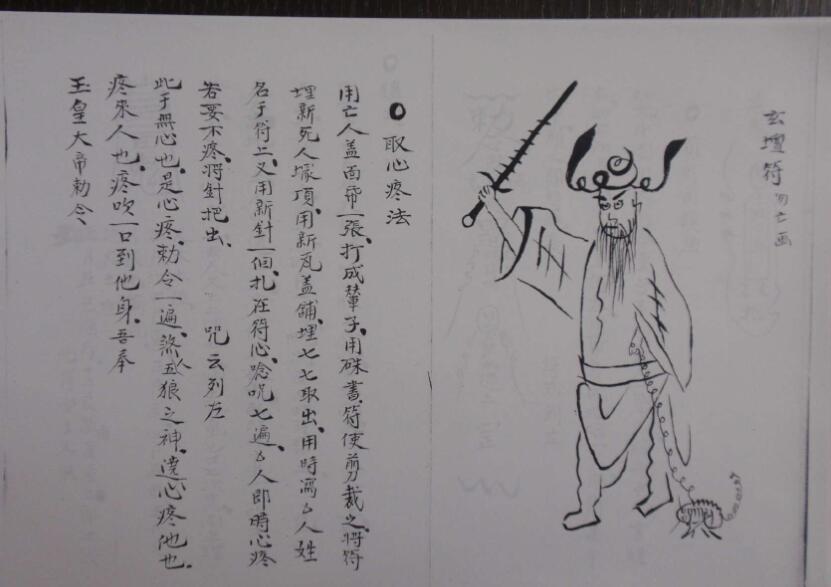 玄壇符
取心疼法
用亡人盖面帋一張、打成輦子、用硃書符、使剪裁之、將符
埋新死人塚頂、用新瓦盖鋪、埋七七取出、用時寫厶人姓
名于符上、又用新針一個、扎在符心、唸咒七遍、厶人即時心疼
若要不疼、將針把出、 咒云列左
此于無心也、是心疼、勅令一遍、煞五狼之神、遶心疼他也、
疼來人也、疼吹一口到他身、吾奉
玉皇大帝勅令、